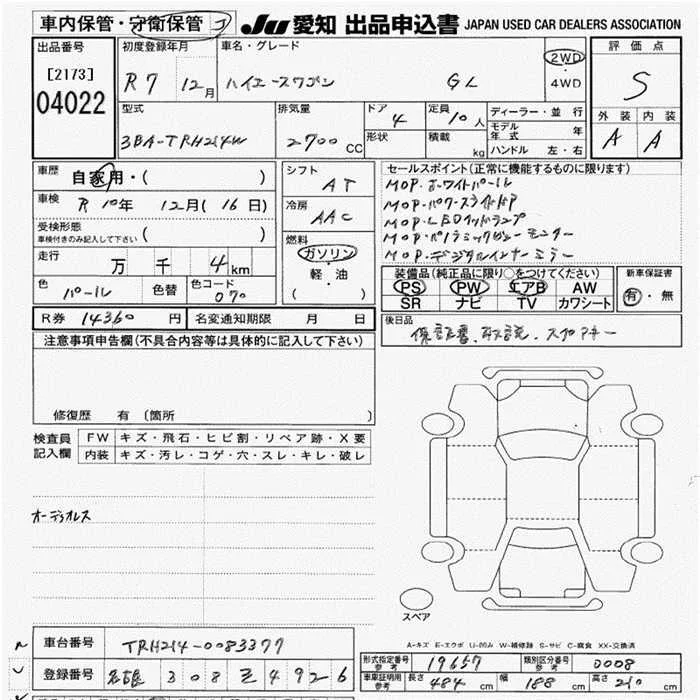 車内保管・守衛保管 コ
JU 愛知 出品申込書 JAPAN USED CAR DEALERS ASSOCIATION
出品番号
[2173]
04022
初度登録年月
R7 12月
車名・グレード
ハイエースワゴン GL
2WD
・
4WD
評価点
S
外装 内装
A A
型式
3BA-TRH214W
排気量
2700 CC
ドア
4
形状
定員
10人
積載
kg
ディーラー・並行
モデル年式 年
ハンドル 左・右
車歴
自家用・( )
車検
R 10年 12月(16日)
受検形態
車検付きのみ記入して下さい ( )
走行
万 千 4km
色
パール
色替
色コード
070
シフト
AT
冷房
AAC
燃料
ガソリン
軽・油
( )
セールスポイント(正常に機能するものに限ります)
MOP.ホワイトパール
MOP.パワースライドドア
MOP.LEDヘッドランプ
MOP.パノラミックビューモニター
MOP.デジタルインナーミラー
装備品(純正品に限り○をつけてください)
PS PW エアB AW
SR ナビ TV カワシート
新車保証書
有・無
R券 14360 円
名変通知期限 月 日
後日品
保証書.取説.スペアキー
注意事項申告欄(不具合内容等は具体的に記入して下さい)
修復歴 有 〔箇所
検査員
記入欄
FW キズ・飛石・ヒビ割・リペア跡・X要
内装 キズ・汚レ・コゲ・穴・スレ・キレ・破レ
オーディオレス
スペア
A-キズ E-エクボ U-凹み W-補修跡 S-サビ C-腐食 XX-交換済
車台番号
TRH214-0083377
登録番号
名古屋 308 ミ 4926
形式指定番号
参考
19657
類別区分番号
参考
0008
車庫証明用
参考
長さ 484 cm 幅 188 cm 高さ 210 cm